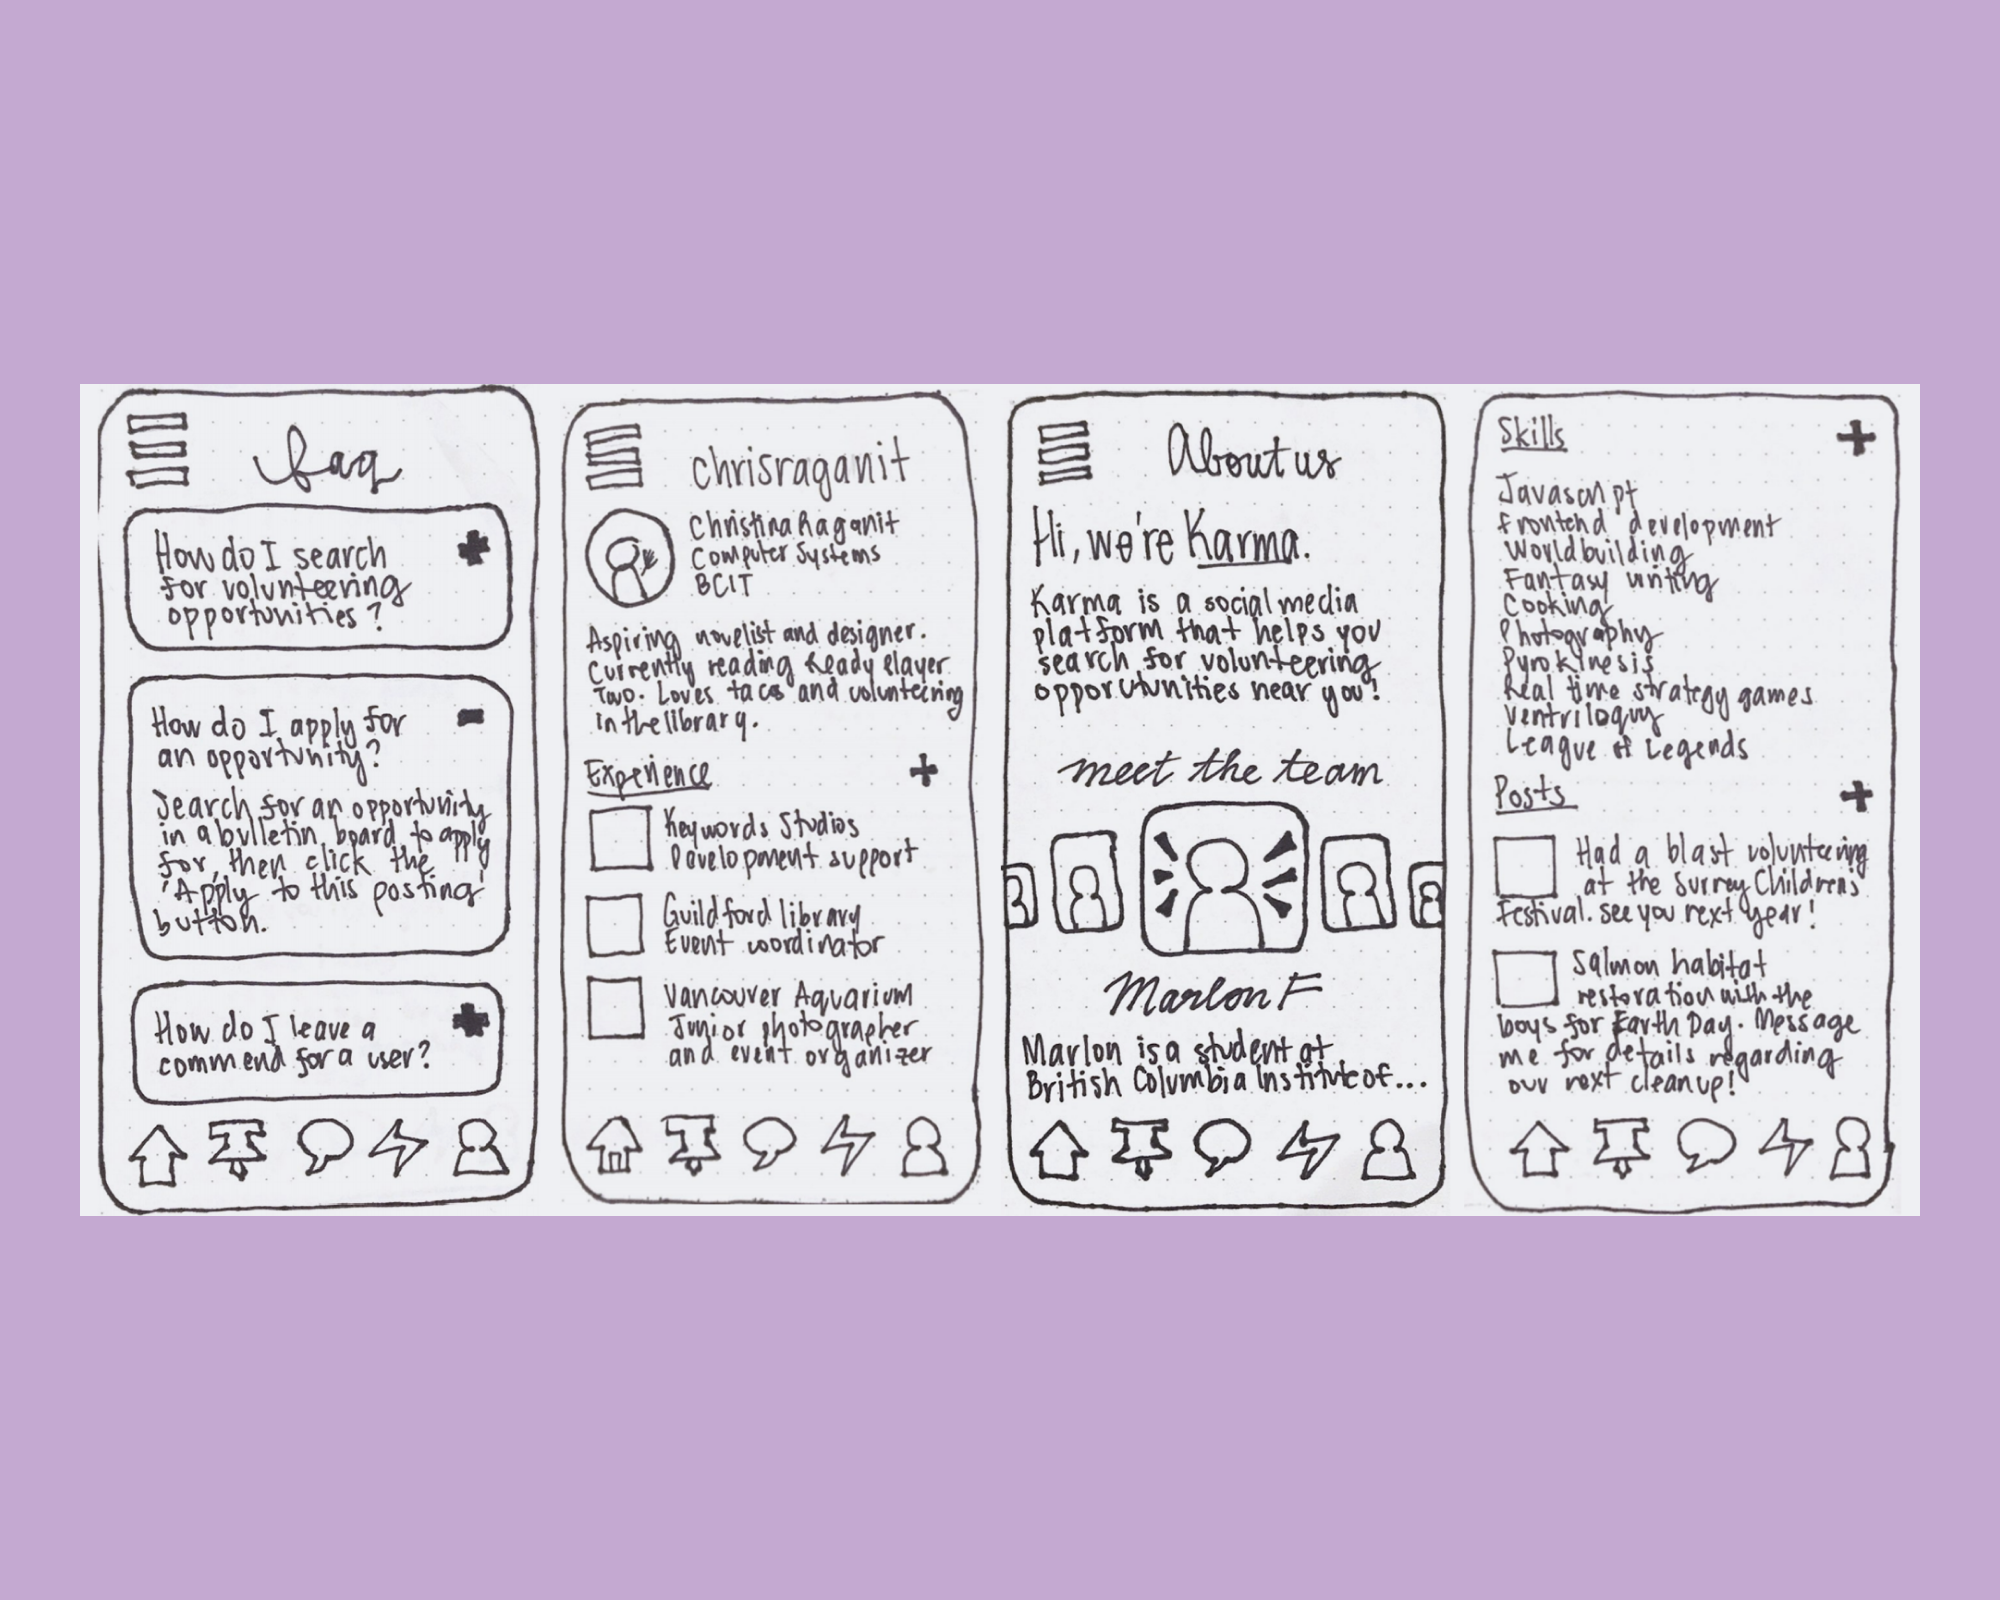 faq
How do I search
for volunteering
opportunities?
How do I apply for
an opportunity?
Search for an opportunity
in a bulletin board to apply
for, then click the
'Apply to this posting'
button.
How do I leave a
commend for a user?
chrisraganit
Christina Raganit
Computer Systems
BCIT
Aspiring novelist and designer.
Currently reading Ready Player
Two. Loves tacos and volunteering
in the library.
Experience
Keywords Studios
Development support
Guildford library
Event coordinator
Vancouver Aquarium
Junior photographer
and event organizer
About us
Hi, we're Karma.
Karma is a social media
platform that helps you
search for volunteering
opporutunities near you!
meet the team
Marlon F
Marlon is a student at
British Columbia Institute of...
Skills
Javascript
frontend development
Worldbuilding
Fantasy writing
Cooking
Photography
Pyrokinesis
Real time strategy games
Ventriloquy
League of Legends
Posts
Had a blast volunteering
at the Surrey Childrens
Festival. See you next year!
Salmon habitat
restoration with the
boys for Earth Day. Message
me for details regarding
our next cleanup!